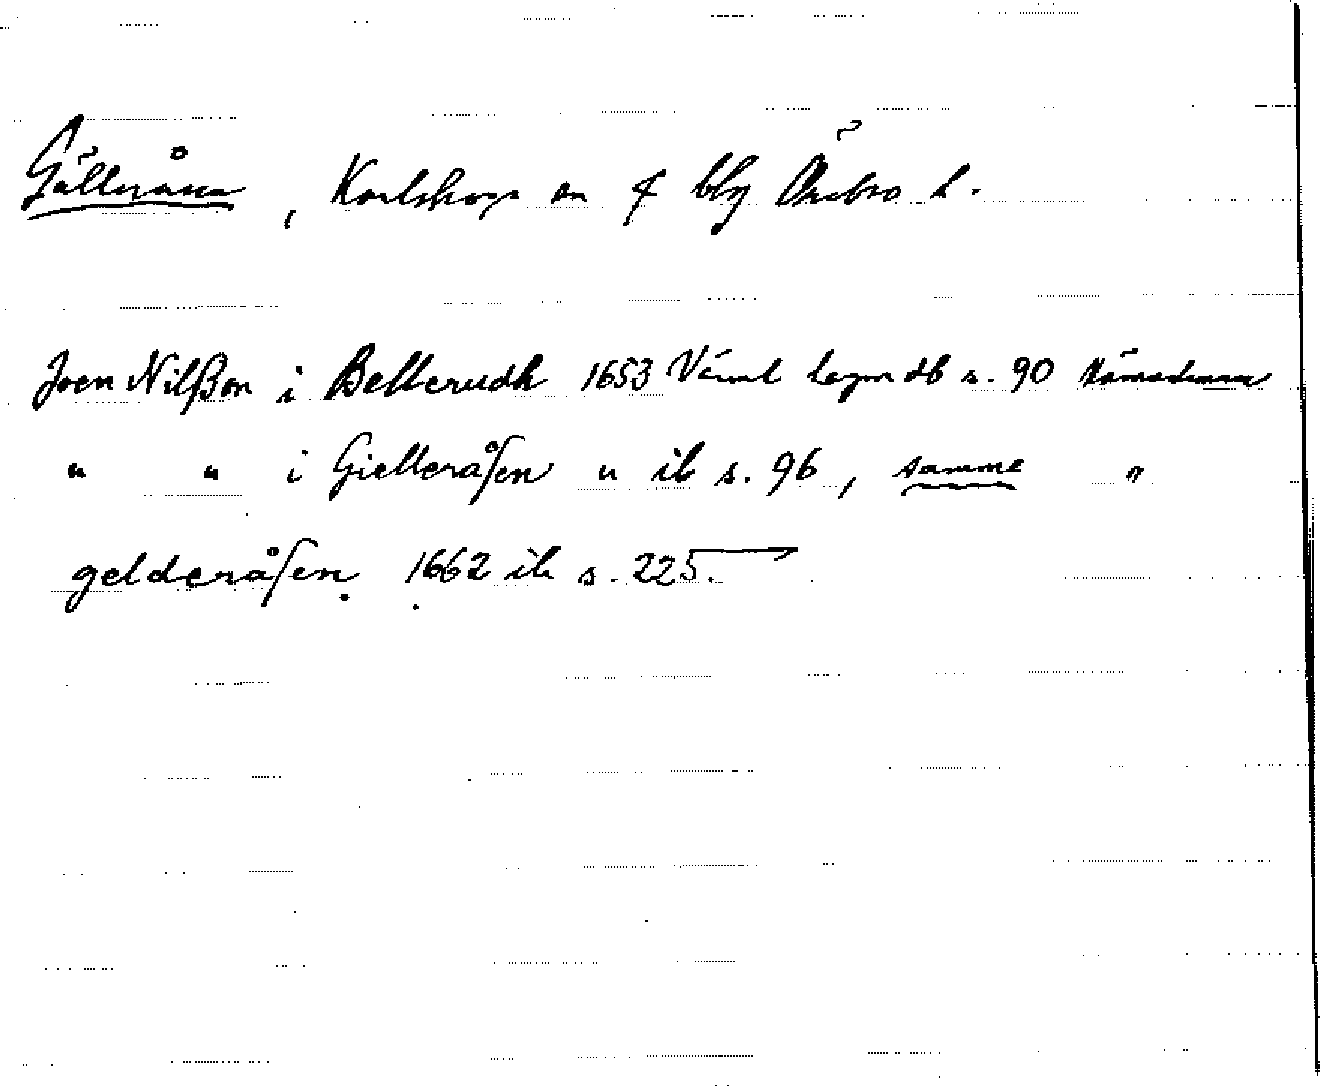 Gälleråsen, Karlskoga sn f blg Örebro l.
Joen Nilßon i Bellerudh 1653 Värml lagm db s. 90 Nämndeman
" " i Gielleråsen " ib s. 96, samme "
gelderåsen 1662 ib s. 225.